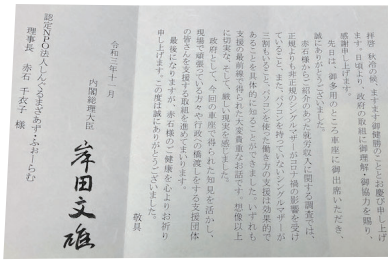 拝啓 秋冷の候、ますます御健勝のこととお慶び申し上げ
ます。日頃より、政府の取組に御理解・御協力を賜り、
感謝申し上げます。
先日は、御多用のところ車座に御出席いただき、
誠にありがとうございました。
赤石様からご紹介のあった就労収入に関する調査では、
正規よりも非正規のシングルマザーがコロナ禍の影響を受け
ていること、また、パソコンを持っていないシングルマザーが
三割もいる
あることを具体的に知ることができました。いずれも
支援の最前線で得られた大変貴重なお話です。想像以上
に切実な、そして、厳しい現実を感じました。
政府として、今回の車座で得られた知見を活かし、
現場で頑張っている方々や行政への橋渡しをする支援団体
の皆さんを支援する取組を進めてまいります。
最後になりますが、赤石様のご健康を心よりお祈り
申し上げます。この度は誠にありがとうございました。
敬具
令和三年十一月
内閣総理大臣
岸田文雄
認定NPO法人しんぐるまざあず・ふぉーらむ
理事長 赤石 千衣子 様